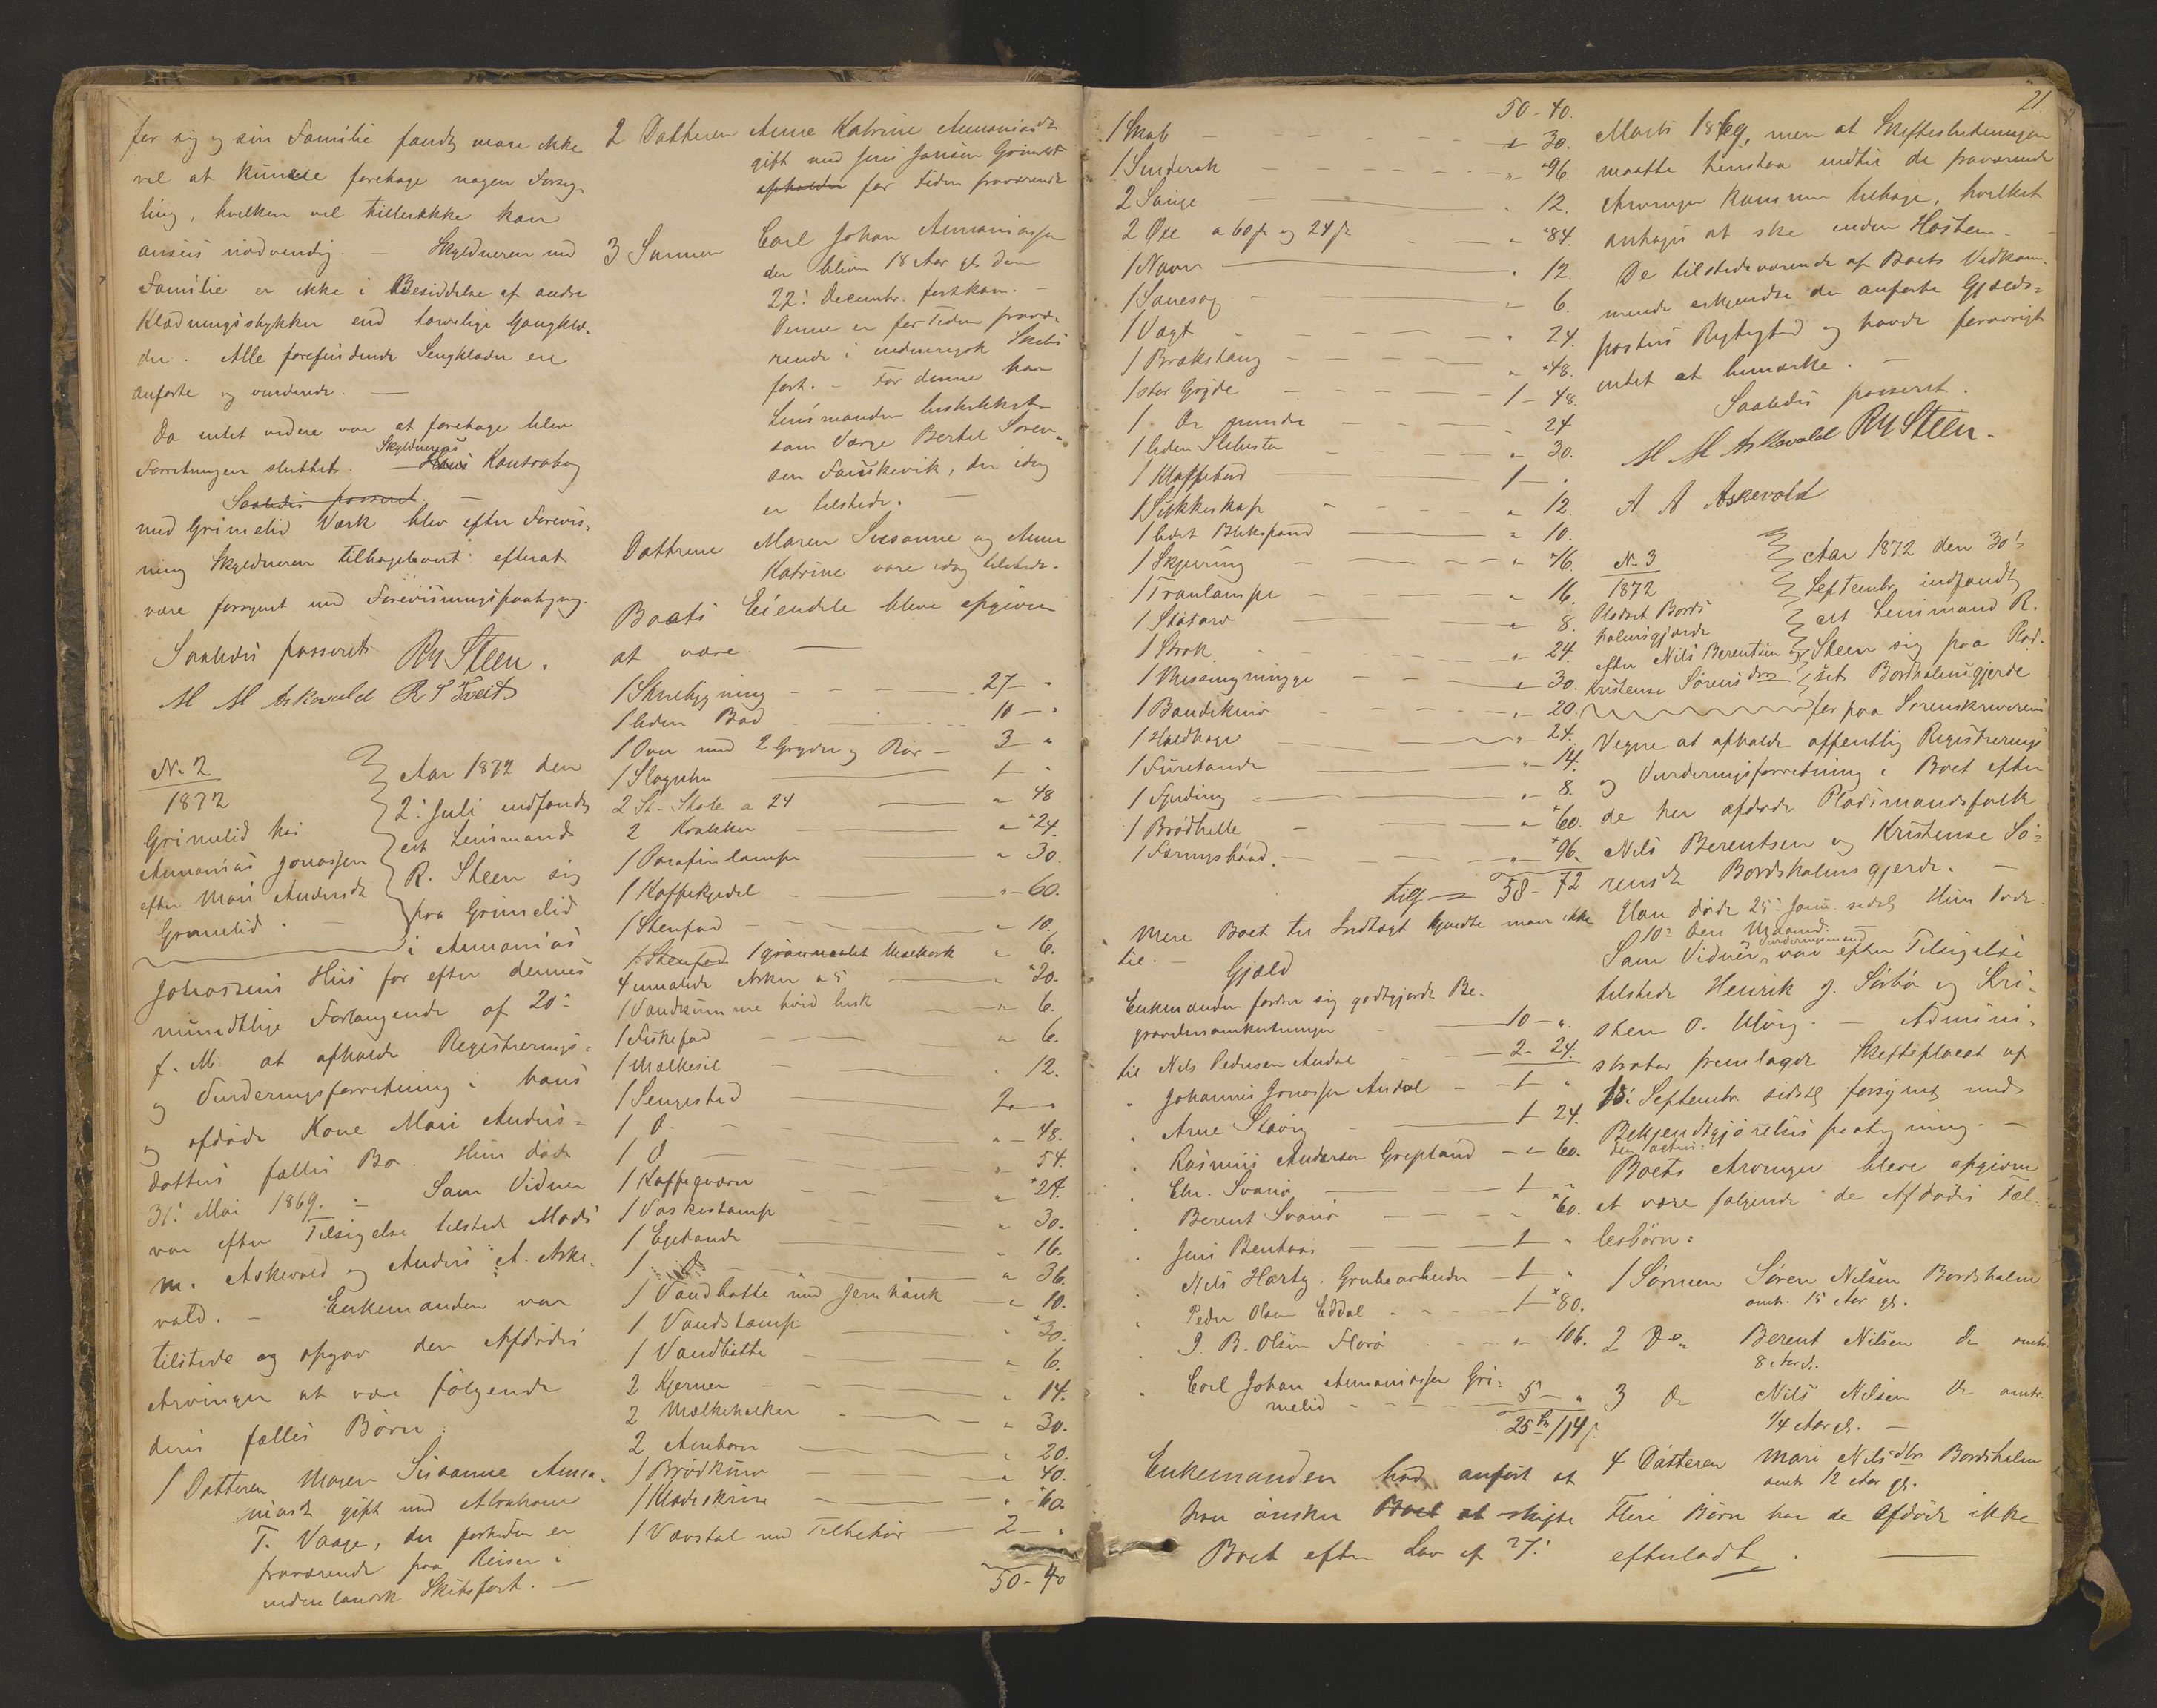 for sig og sin Familie fandtes mare ikke
vel at kunne foretage nogen Forseg-
ling, hvilken vel tillerikke kan
ansees nødvendig. — Skyldneren med
Familie er ikke i Besiddelse af andre
Klædningsstykker end torvelige Gangklæ-
der. Alle forefindende Sengklæder ere
anførte og vurderede. —
Da intet videre var at foretage blev
Forretningen sluttet. — Skyldnerens Kontrabog
Saaledes passeret. —
med Grimelid Værk blev efter Forevis-
ning Skyldneren tilbageleveret efterat
være forsynet med Forevisningspaategning.
Saaledes passeret
RSteen.
M M Askevold R S Tveit
No 2
1872
Grimelid hos
Ananias Jonassen
efter Mari Andersdt
Grimelid.
Aar 1872 den
2: Juli indfandt
est Lensmand
R. Steen sig
paa Grimelid
i Ananias
Johassens Hus for efter dennes
mundtlige Forlangende af 20:
f. M. at afholde Registrerings-
og Vurderingsforretning i hans
og afdøde Kone Mari Anders-
datters fælles Bo. Hun døde
31: Mai 1869. — Som Vidner
var efter Tilsigelse tilstede Mads
M. Askevold og Anders A. Aske-
vold. — Enkemanden var
tilstede og opgav den Afdødes
Arvinger at være følgende
deres fælles Børn:
1 Datteren Maren Susanne Anan-
iasdt gift med Abraham
T. Vaage, der fortiden er
fraværende paa Reiser i
indenlandsk Skibsfart. —
2 Datteren Anne Katrine Ananiasdt
gift med Jens Jansen Grimelid
opholder for Tiden fraværende
3 Sønnen Carl Johan Ananiassen
der bliver 18 Aar gl. den
22: Decembr. førstkom. —
Denne er for Tiden fravæ-
rende i indenrigsk Skibs
fart. — For denne har
Lensmanden beskikket
som Værge Bertel Søren-
sen Fauskevik, der idag
er tilstede. —
Døttrene Maren Susanne og Anne
Katrine vare idag tilstede.
Boets Eiendele bleve opgivne
at være. —
1 Stuebygning 27 — "
1 liden Bod 10 — "
1 Ovn med 2 Gryder og Rør — 3 — "
1 Slaguhr 1 — "
2 St. Stole a 24 " 48
2 Krakker " 24.
1 Parafinlampe " 30.
1 Kaffekjedel " 60.
1 Stenfad " 10.
1 Stenfad 1 graamalet " 6.
4 umalede Asker a 5 " 20.
1 Vandkumme " 6.
1 Fiskefad " 6.
1 Mælkesil " 12.
1 Sengested 2 — "
1 D. " 48.
1 D " 54.
1 Kaffeqværn " 24.
1 Vaskestamp " 30.
1 " 16.
1 " 36.
1 Vandbøtte med Jernhank " 10.
1 Vandstamp " 30.
1 Vandbøtte " 6.
2 Kjerner " 14.
2 Mælkeholker " 30.
2 " 20.
1 Brødkurv " 40.
1 Klædeskrin " 60.
1 Vævstol med Tilbehør 2 — "
50 - 40
21.
50 - 40.
1 Skab " 30.
1 " 96.
2 " 12.
2 Øxe a 60 ß og 24 ß " 84.
1 Navar " 12.
1 " 6.
1 Vægt " 24.
1 Brækstang " 48.
1 stor Gryde 1 - 48.
1 Do mindre " 24
1 liden Slibesten " 30.
1 Klaffebord 1 — "
1 Sukkerkop " 12.
1 lidet Blikspand " 10.
1 " 16.
1 Tranlampe " 16.
1 " 8.
1 " 24.
1 " 30.
1 " 20.
1 " 24.
1 " 14.
1 " 8.
1 Brødhelle " 60.
1 " 96.
58 - 72
Mere Boet til Indtægt kjendte man ikke
til. —
Gjæld
Enkemanden fordrer sig godtgjorde Be-
gravelsesomkostninger 10 — "
til Nils Pedersen Audal 2 - 24.
" Johannes Jonassen Audal 1 — "
" Arne Stavig 1 24.
" Rasmus Andersen Grepland " 60.
" Chr. Svanø 1 "
" Berent Svanø " 60.
" Jens Benhaas 1 "
" Nils Hærty. Grubearbeider 1 "
" Peder Olsen Eddal 1 80.
" J. B. Olsen Florø " 106.
" Carl Johan Ananiassen Gri-
melid 5 — "
25 Sp 114 ß
Enkemanden har anført at
han ønsker Boet at skifte
Boet efter Lov af 27:
Marts 1869, men at Skifteslutningen
maatte henstaa indtil de fraværende
Arvinger kommer tilbage, hvilket
antages at ske inden Høsten. —
De tilstedeværende af Boets Vedkom-
mende erkjendte de anførte Gjælds-
posters Rigtighed og havde forøvrigt
intet at bemærke. —
Saaledes passeret.
M M Askevold RSteen.
A A Askevold
No 3
1872
Pladset Bords
holmsgjærde
efter Nils Berentsen og
Kristense Sørensdtr
Aar 1872 den 30'
Septembr indfandt
est Lensmand R.
Steen sig paa Plad-
set Bordholmsgjerde
for paa Sorenskriverens
Vegne at afholde offentlig Registrerings
og Vurderingsforretning i Boet efter
de her afdøde Pladsmandsfolk
Nils Berentsen og Kristense Sø-
rensdt Bordsholmsgjerde. —
Han døde 25: Juni sidstl. Hun døde
10: den Maaned.
Som Vidner og Vurderingsmænd var efter Tilsigelse
tilstede Henrik J. Sørbø og Kri-
sten O. Ulvig. — Admini-
strator fremlagde Skifteplacat af
13: Septembr. sidstl. forsynet med
Bekjendtgjørelsespaategning. —
Boets Arvinger bleve opgivne
at være følgende de Afdødes Fæl-
lesbørn:
1 Sønnen Søren Nilsen Bordsholm
omtr. 15 Aar gl.
2 Do Berent Nilsen Do omtr.
8 Aar gl.
3 Do Nils Nilsen Do omtr.
1/4 Aar gl. —
4 Datteren Mari Nilsdtr Bordsholm
omtr. 12 Aar gl.
Flere Børn har de Afdøde ikke
efterladt. —